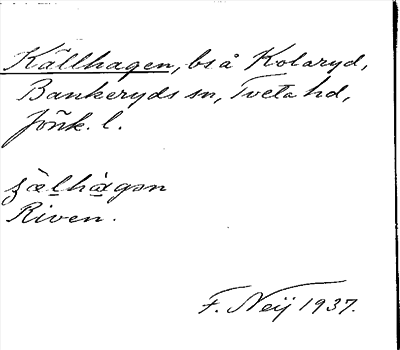 Källhagen, bs å Kolaryd,
Bankeryds sn, Tveta hd,
Jönk. l.
ʒälhàgən
Riven.
F. Neij 1937.